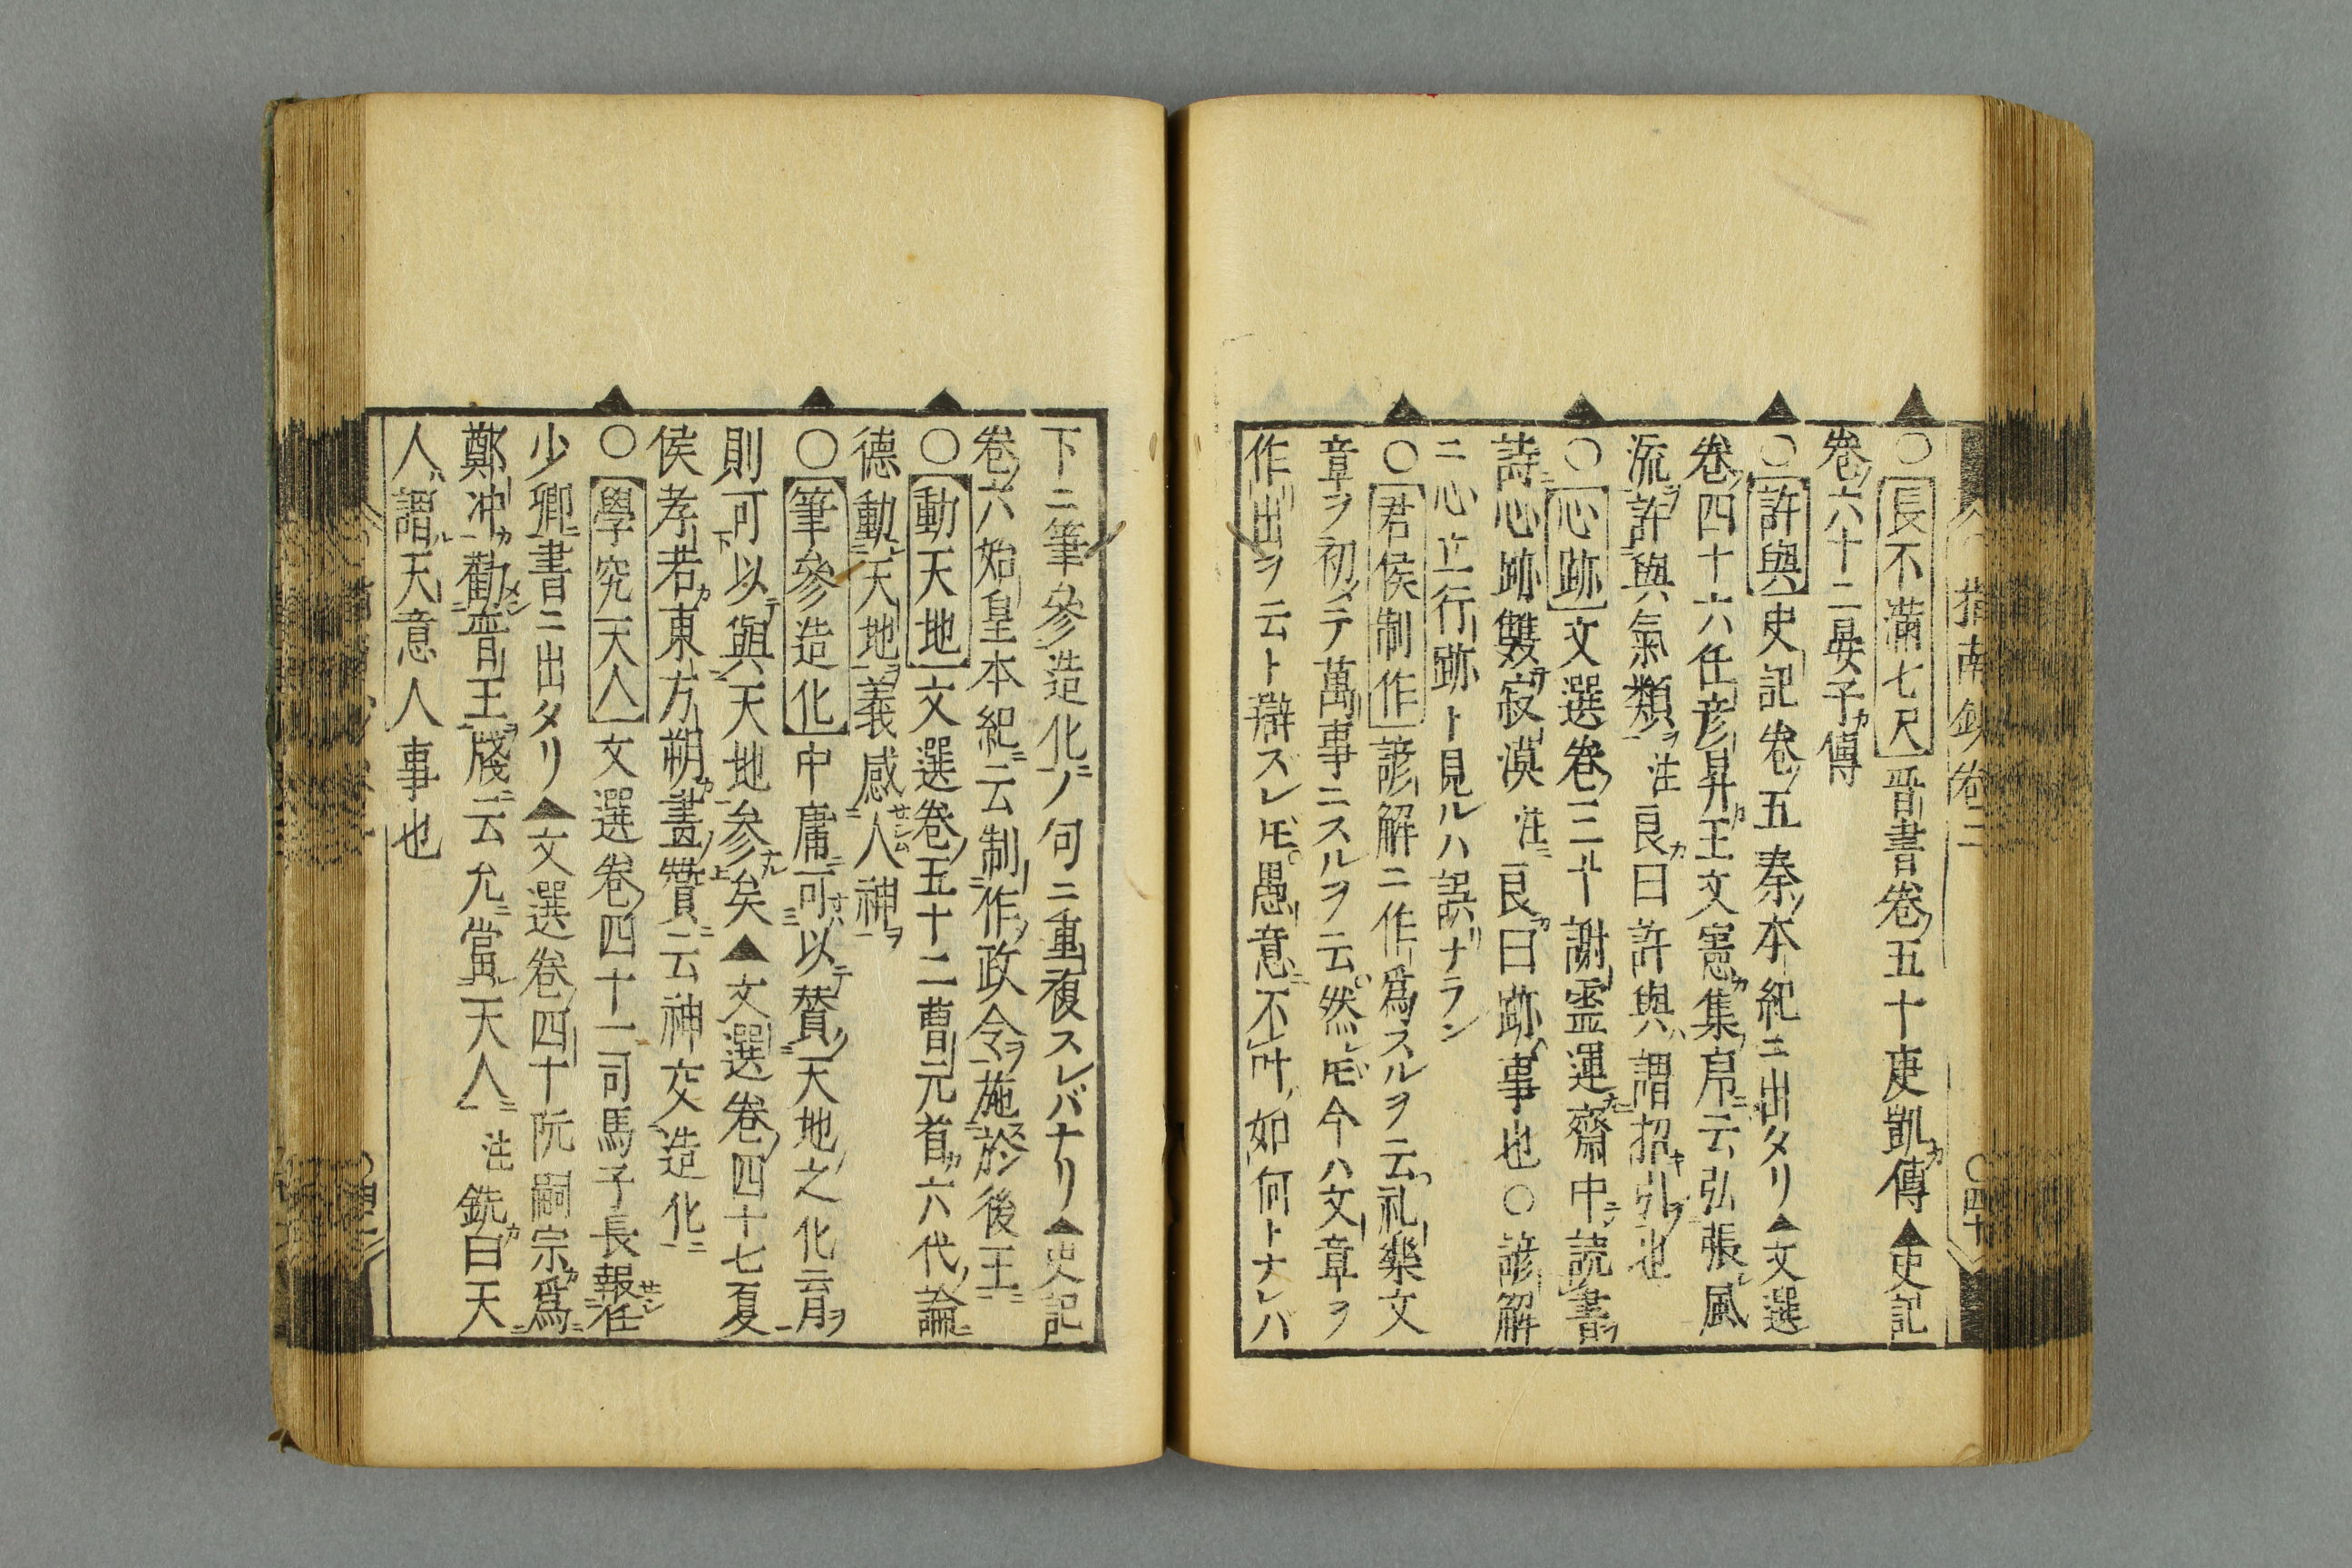 指南鈔卷二
○四十
○長不滿七尺晉書卷五十庾凱傳▲史記
卷六十二晏子傳
○許與史記卷五秦本紀ニ出タリ▲文選
卷四十六任彦昇王文憲集序云弘張風
流許與氣類注良曰許與謂招引也
○心跡文選卷三十謝霊運齋中読書
詩心跡雙寂漠注良曰跡事也○諺解
ニ心立行跡ト見ルハ誤ナラン
○君侯制作諺解ニ作爲スルヲ云礼樂文
章ヲ初メテ萬事ニスルヲ云然レ𪜈今ハ文章ヲ
作出ヲ云ト辯スレ𪜈愚意不叶如何トナレバ
下ニ筆參造化ノ句ニ重複スレバナリ▲史記
卷六始皇本紀云制作政令施於後王
○動天地文選卷五十二曹元首六代論
德動天地義感人神
○筆參造化中庸可以賛天地之化育
則可以與天地参矣▲文選卷四十七夏
侯孝若東方朔畫賛云神交造化
○學究天人文選卷四十一司馬子長報任
少卿書ニ出タリ▲文選卷四十阮嗣宗爲
鄭冲勸晋王牋云允當天人注銑曰天
人謂天意人事也